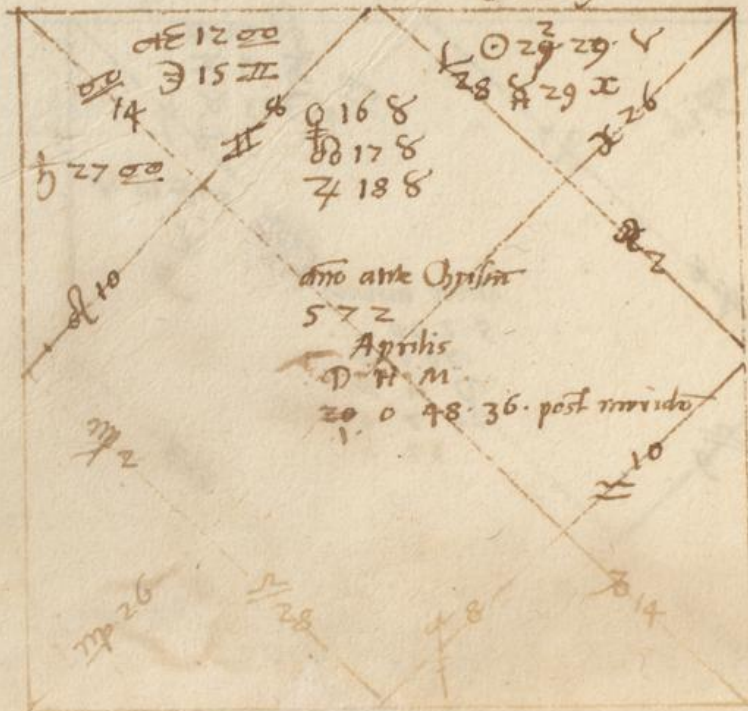 12 ♋
☽ 15 ♊
♋ 14
♄ 27 ♋
♊ 8
☿ 16 ♉
☊ 17 ♉
♃ 18 ♉
☉ 29 29 ♈
2
28 ♉
29
26
2
♌ 10
anno ante Christum
5 7 2
Aprilis
D · H · M
20 0 48 · 36 · post meridiem
1 ·
♒ 10
♍ 2
♍ 26
♎ 28
♐ 8
♑ 14